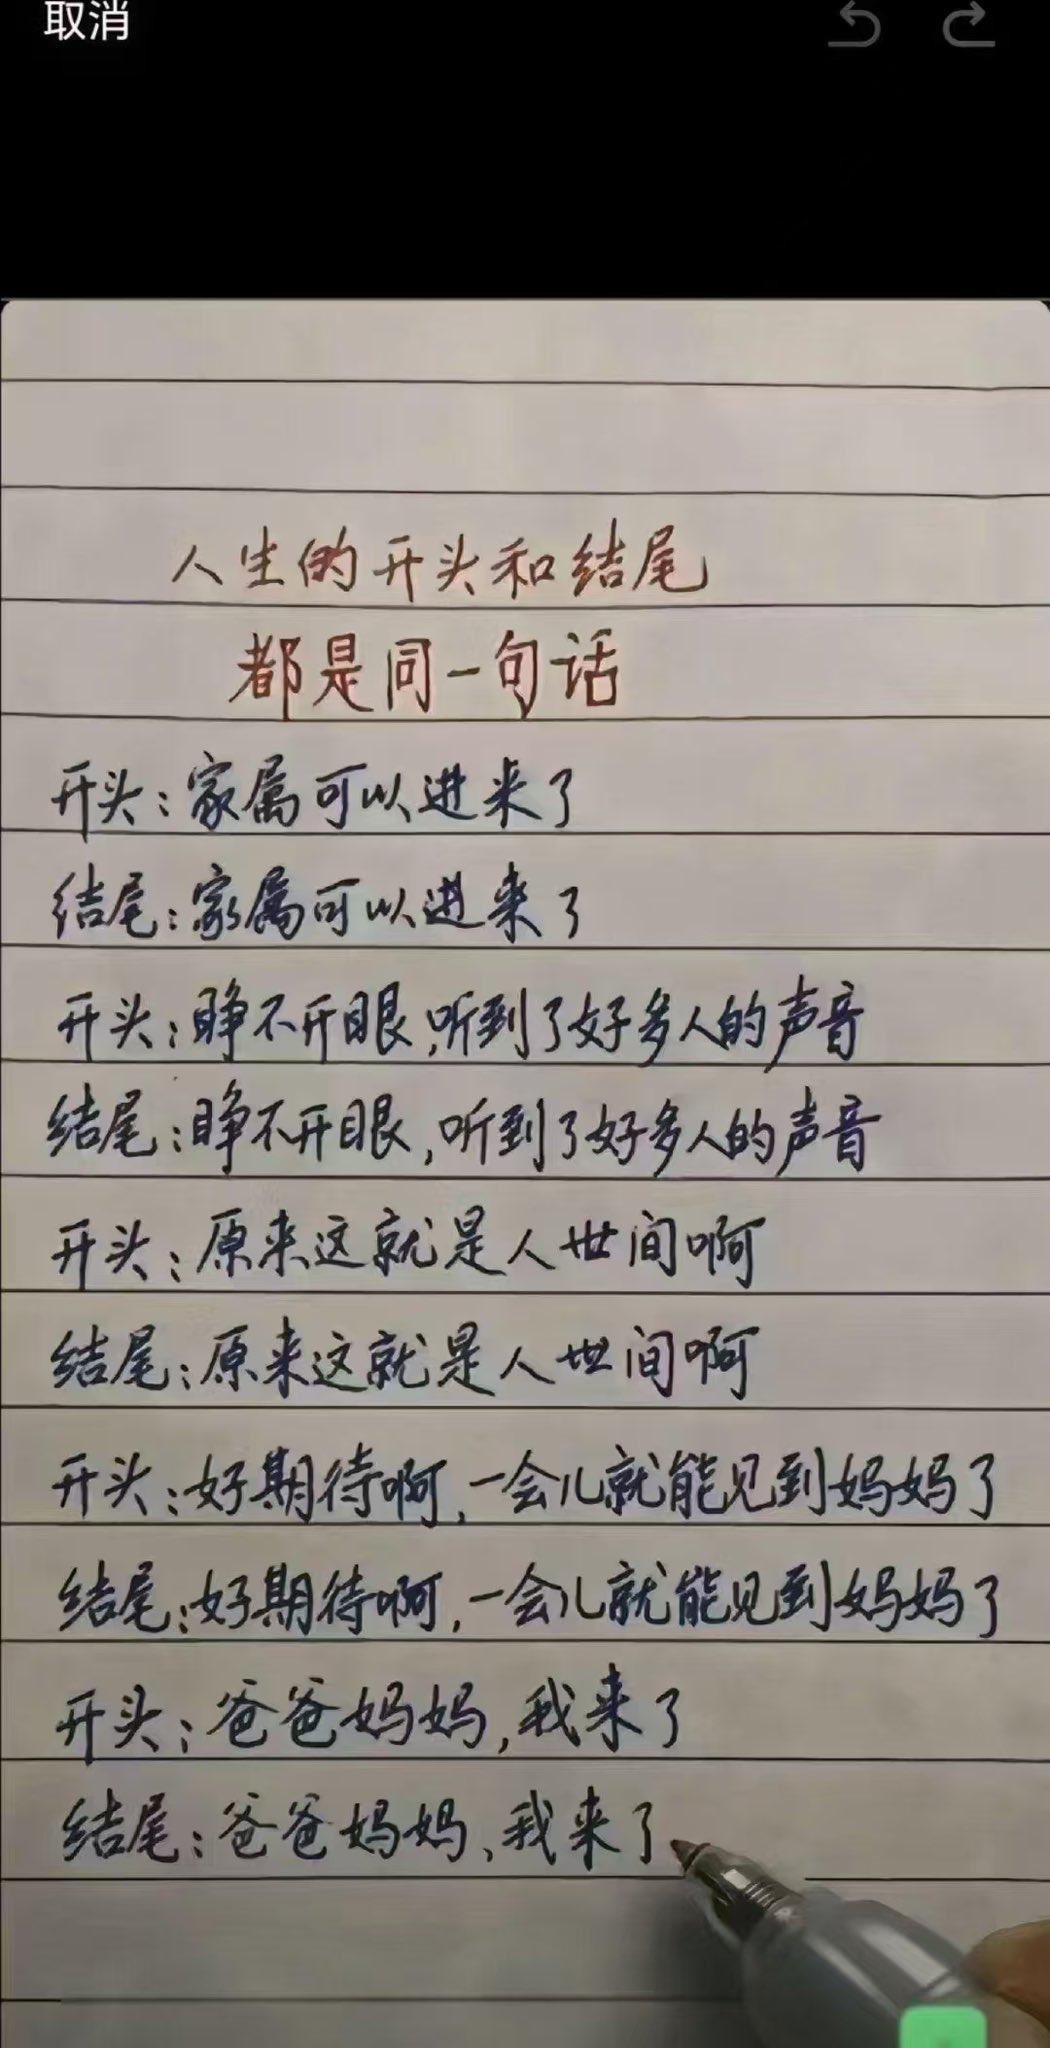 取消
人生的开头和结尾
都是同一句话
开头:家属可以进来了
结尾:家属可以进来了
开头:睁不开眼,听到了好多人的声音
结尾:睁不开眼,听到了好多人的声音
开头:原来这就是人世间啊
结尾:原来这就是人世间啊
开头:好期待啊,一会儿就能见到妈妈了
结尾:好期待啊,一会儿就能见到妈妈了
开头:爸爸妈妈,我来了
结尾:爸爸妈妈、我来了